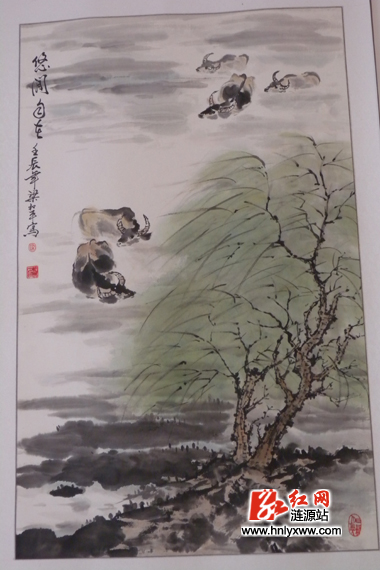 悠闲自在
壬辰年梁
写
红网
涟源站
www.hnlyxww.com